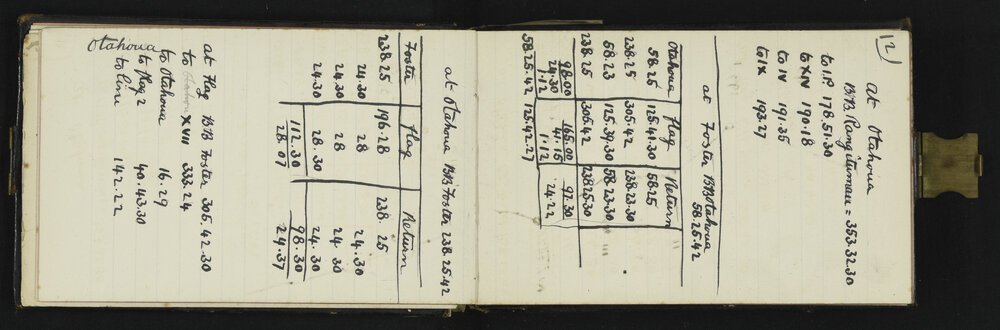 12)
at Otahoua
B/B Rangitumau = 353.32.30
to I.P 178.51.30
to XIV 190.18
to IV 191.35
to IX 193.27
at Foster B/B Otahoua
58.25.42
Otahoua Flag Return
58.25 125.41.30 58.25
238.25 305.42 238.23.30
58.23 125.39.30 58.23.30
238.25 305.42 238.25.30
98.00 165.00 97.30
24.30 41.15 24.22
1.12 1.12
58.25.42 125.42.27
at Otahoua B/B Foster 238.25.42
Foster Flag Return
238.25 196.28 238.25
24.30 28 24.30
24.30 28 24.30
24.30 28.30 24.30
112.30 98.30
28.07 24.37
at Flag B/B Foster 305.42.30
to XVII 333.24
to Otahoua 16.29
to flag 2 40.43.30
to line 142.22
Otahoua